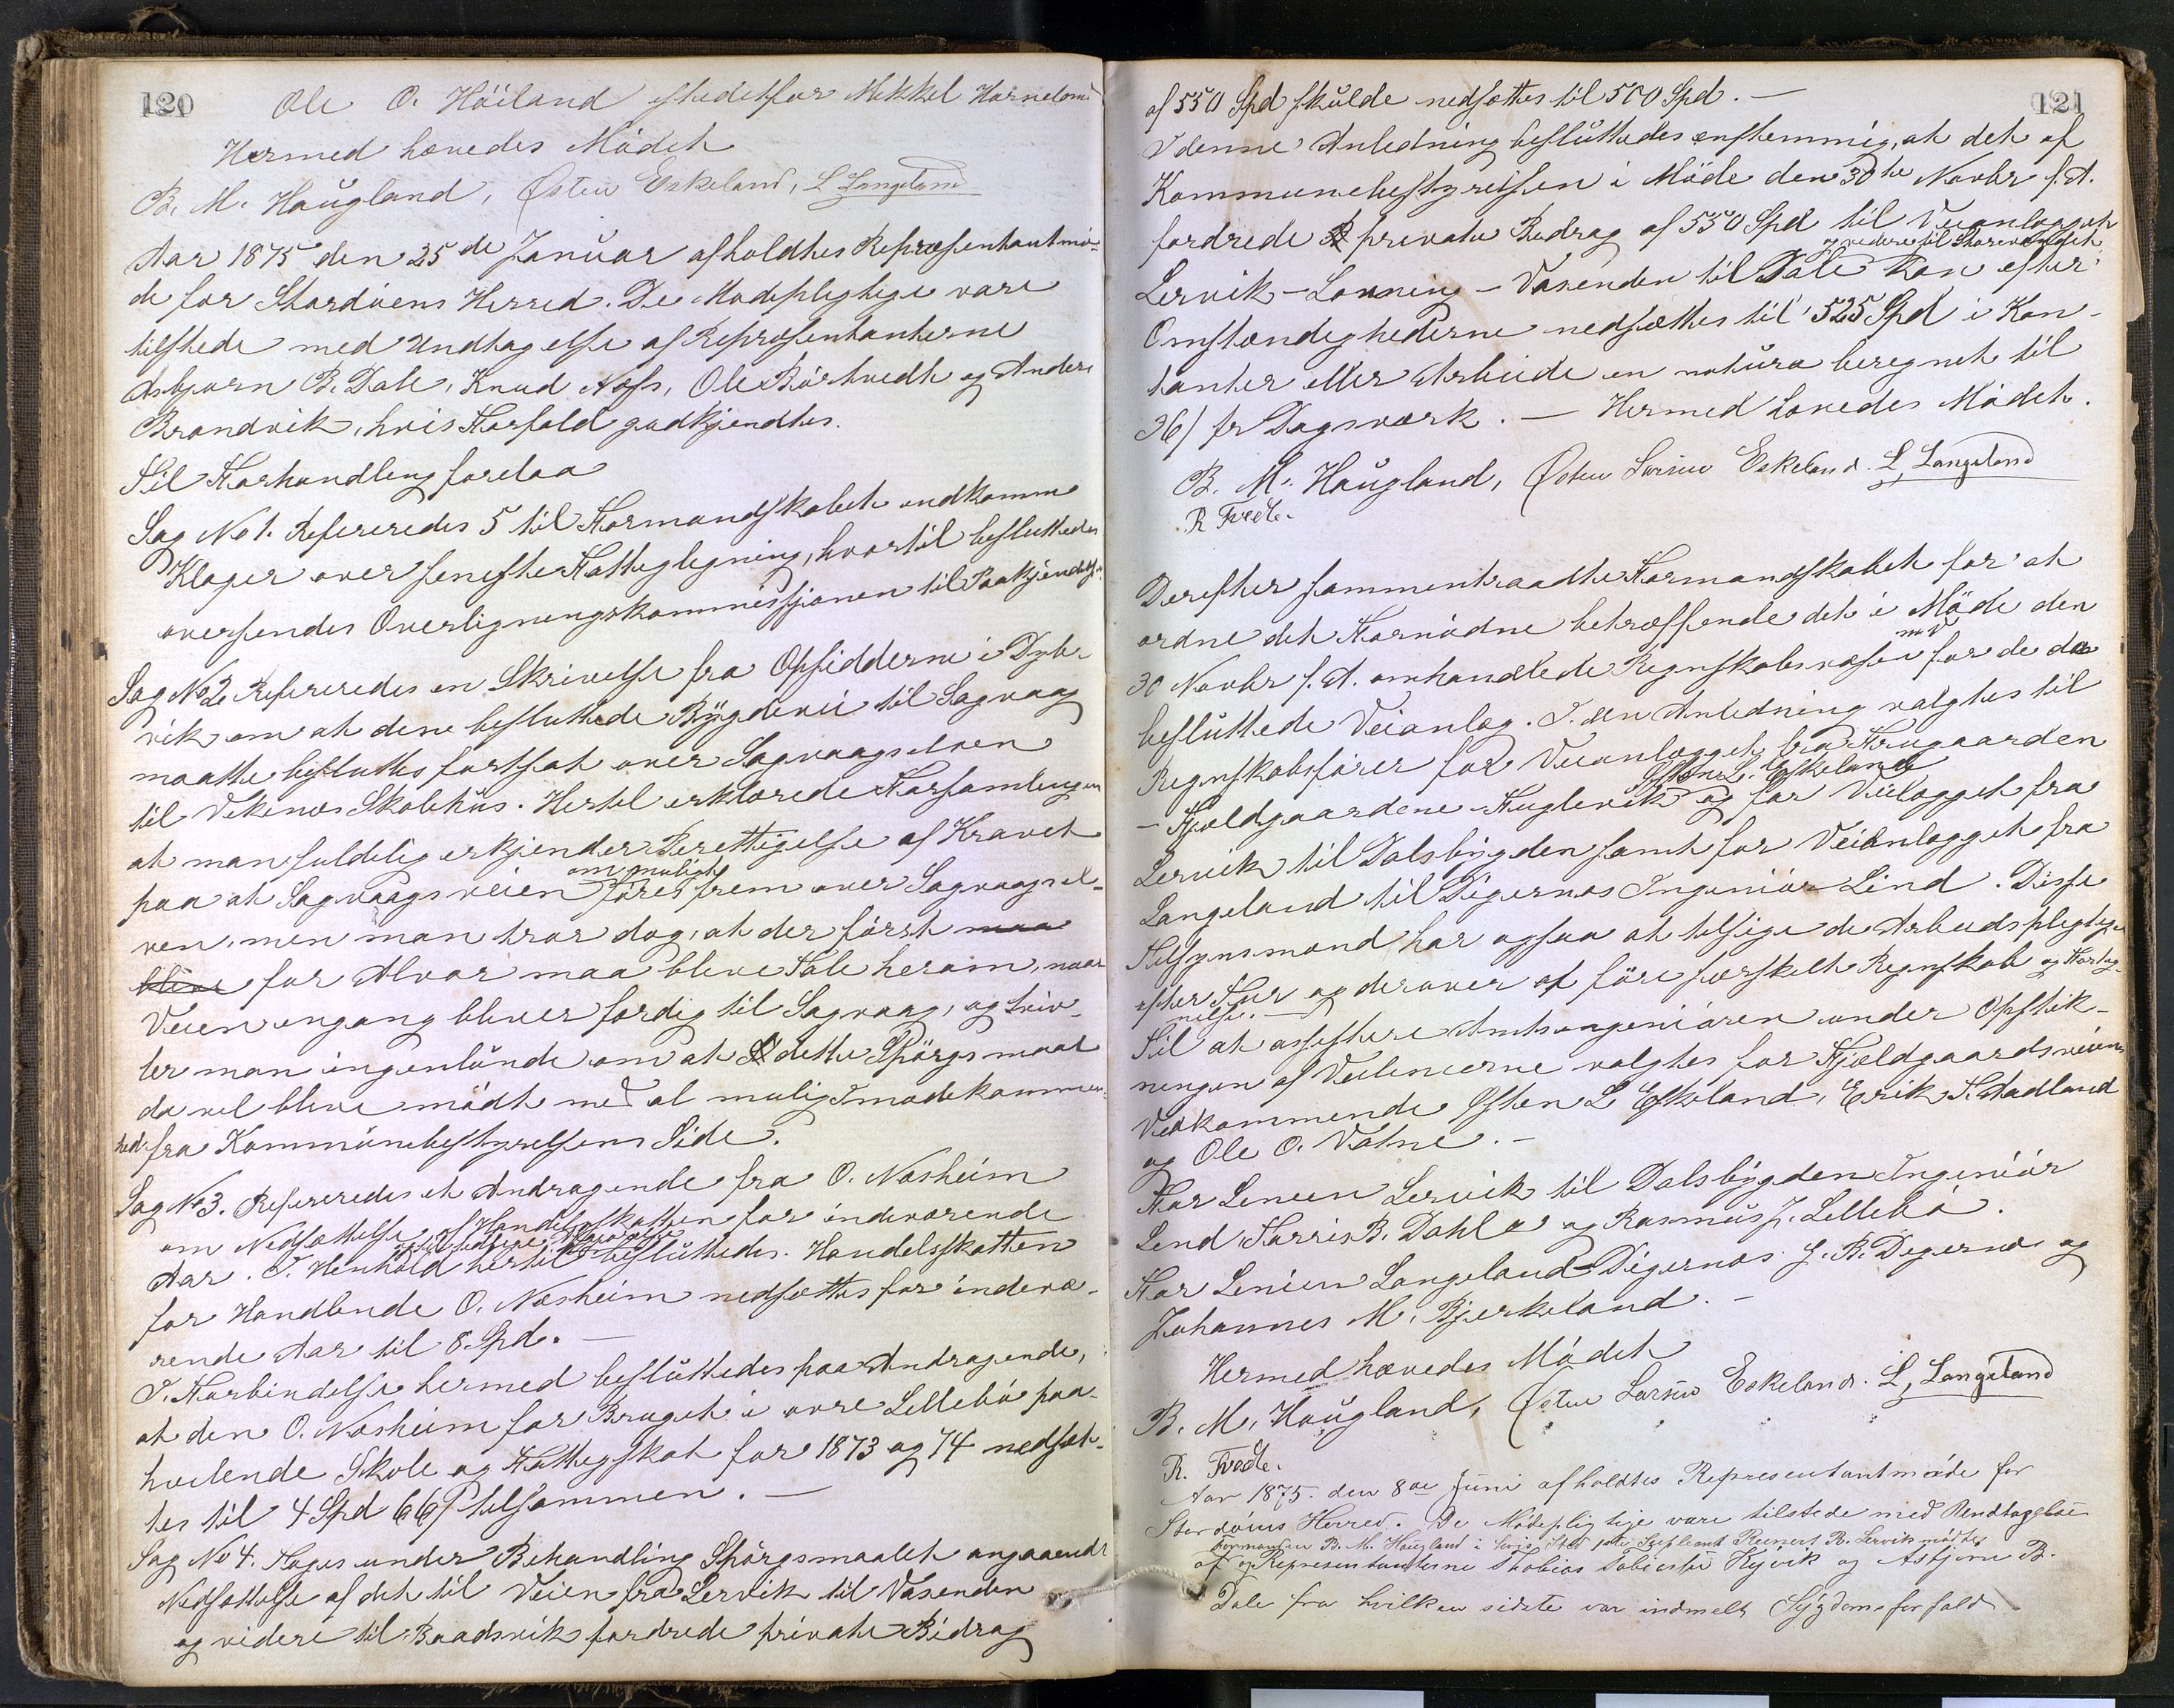 120
Ole O. Höiland istedetfor Mikkel Hornelans
Hermed hævedes Mödet
B. M. Haugland, Østen Eskeland, L Langeland
Aar 1875 den 25de Januar afholdtes Repræsentantmö-
de for Stordöens Herred. De Mödepligtige vare
tilstede med Undtagelse af Repræsentanterne
Asbjørn B. Dale, Knud Næss, Ole Börtvedt og Anders
Brandvik, hvis Forfald godkjendtes.
Til Forhandling forelaa
Sag No 1. Refereredes 5 til Formandskabet indkomne
Klager over seneste Fattigligning, hvortil besluttedes
oversendes Overligningskommissjonen til Paakjendelse.
Sag No 2. Refereredes en Skrivelse fra Opsidderne i Dyb-
vik om at den besluttede Bygdevei til Sagvaag
maatte besluttes fortsat over Sagvaagselven
til Vikenæs Skolehus. Hertil erklærede Forsamlingen
at man fuldelig erkjender Berettigelse af Kravet
om muligt
paa at Sagvaagsveien föres frem over Sagvaagsel-
ven, men man tror dog, at der först maa
blive for Alvor maa blive Tale herom, naar
Veien engang bliver færdig til Sagvaag, og tviv-
ler man ingenlunde om at dette Spörgsmaal
da vil blive mödt med al mulig Imödekommen-
hed fra Kommünebestyrelsens Side.
Sag No 3. Refereredes et Andragende fra O. Næsheim
om Nedsættelse af Handelsskatten for indeværende
Aar. I Henhold hertil besluttedes. Handelsskatten
for Handlende O. Næsheim nedsættes for indevæ-
rende Aar til 8 Spd. —
I Forbindelse hermed besluttedes paa Andragende,
at den O. Næsheim for Bruget i övre Lillebö paa-
hvilende Skole og Fattigskat for 1873 og 74 nedsæt-
tes til 4 Spd 66 ß tilsammen. —
Sag No 4. Toges under Behandling Spörgsmaalet angaaende
Nedsættelse af det til Veien fra Lervik til Vasenden
og videre til Baadsvik fordrede private Bidrag
121
af 550 Spd skulde nedsættes til 500 Spd. —
I denne Anledning besluttedes enstemmig, at det af
Kommunebestyrelsen i Möde den 30te Novbr f. A.
fordrede private Bidrag af 550 Spd til Veianlægget
og videre til
Lervik – Lønning – Vasenden til Dale kan efter
Omstændighederne nedsættes til 525 Spd i Kon-
tanter eller Arbeide in natura beregnet til
36 ß pr Dagsværk. — Hermed hævedes Mödet.
B. M. Haugland, Østen Larsen Eskeland. L, Langeland
R Tvede.
Derefter sammentraadte Formandskabet for at
ordne det Fornödne betræffende det i Möde den
m V
30 Novbr f. A. omhandlede Regnskabsvæsen for de da
besluttede Veianlæg. I den Anledning valgtes til
Regnskabsförer for Veianlægget fra Frugaarden
Østen L. Eskeland
– Fjeldgaardene – Huglevik og for Veilægget fra
Lervik til Dalsbygden samt for Veianlægget fra
Langeland til Digernæs Ingeniör Lind. Disse
Tilsynsmænd har ogsaa at tilsige de Arbeidspligtige
efter Tur og derover at före særskilt Regnskab og Forteg-
nelse. —
Til at assistere Amtsingeniören under Opstik-
ningen af Veilinierne valgtes for Fjeldgaardsveiens
Vedkommende Østen L Eskeland, Erik T. Aadland
og Ole O. Vatne. –
For Linien Lervik til Dalsbygden Ingeniör
Lind, Torris B. Dahle og Rasmus J. Lillebö.
For Linien Langeland – Digernæs J. B. Digernæs og
Johannes M. Bjerkeland. –
Hermed hævedes Mödet
B. M. Haugland, Østen Larsen Eskeland. L, Langeland
R. Tvede.
Aar 1875 den 8de Juni afholdtes Representantmöde for
Stordöens Herred. De Mödepligtige vare tilstede med Undtagelse
Formanden B. M. Haugland i hvis Sted 1ste Supleant Reinert R. Lervik mödte,
af og Representanterne Thobias Tobiassen Hyvik og Asbjörn B.
Dale fra hvilken sidste var indmeldt Sygdomsforfald.